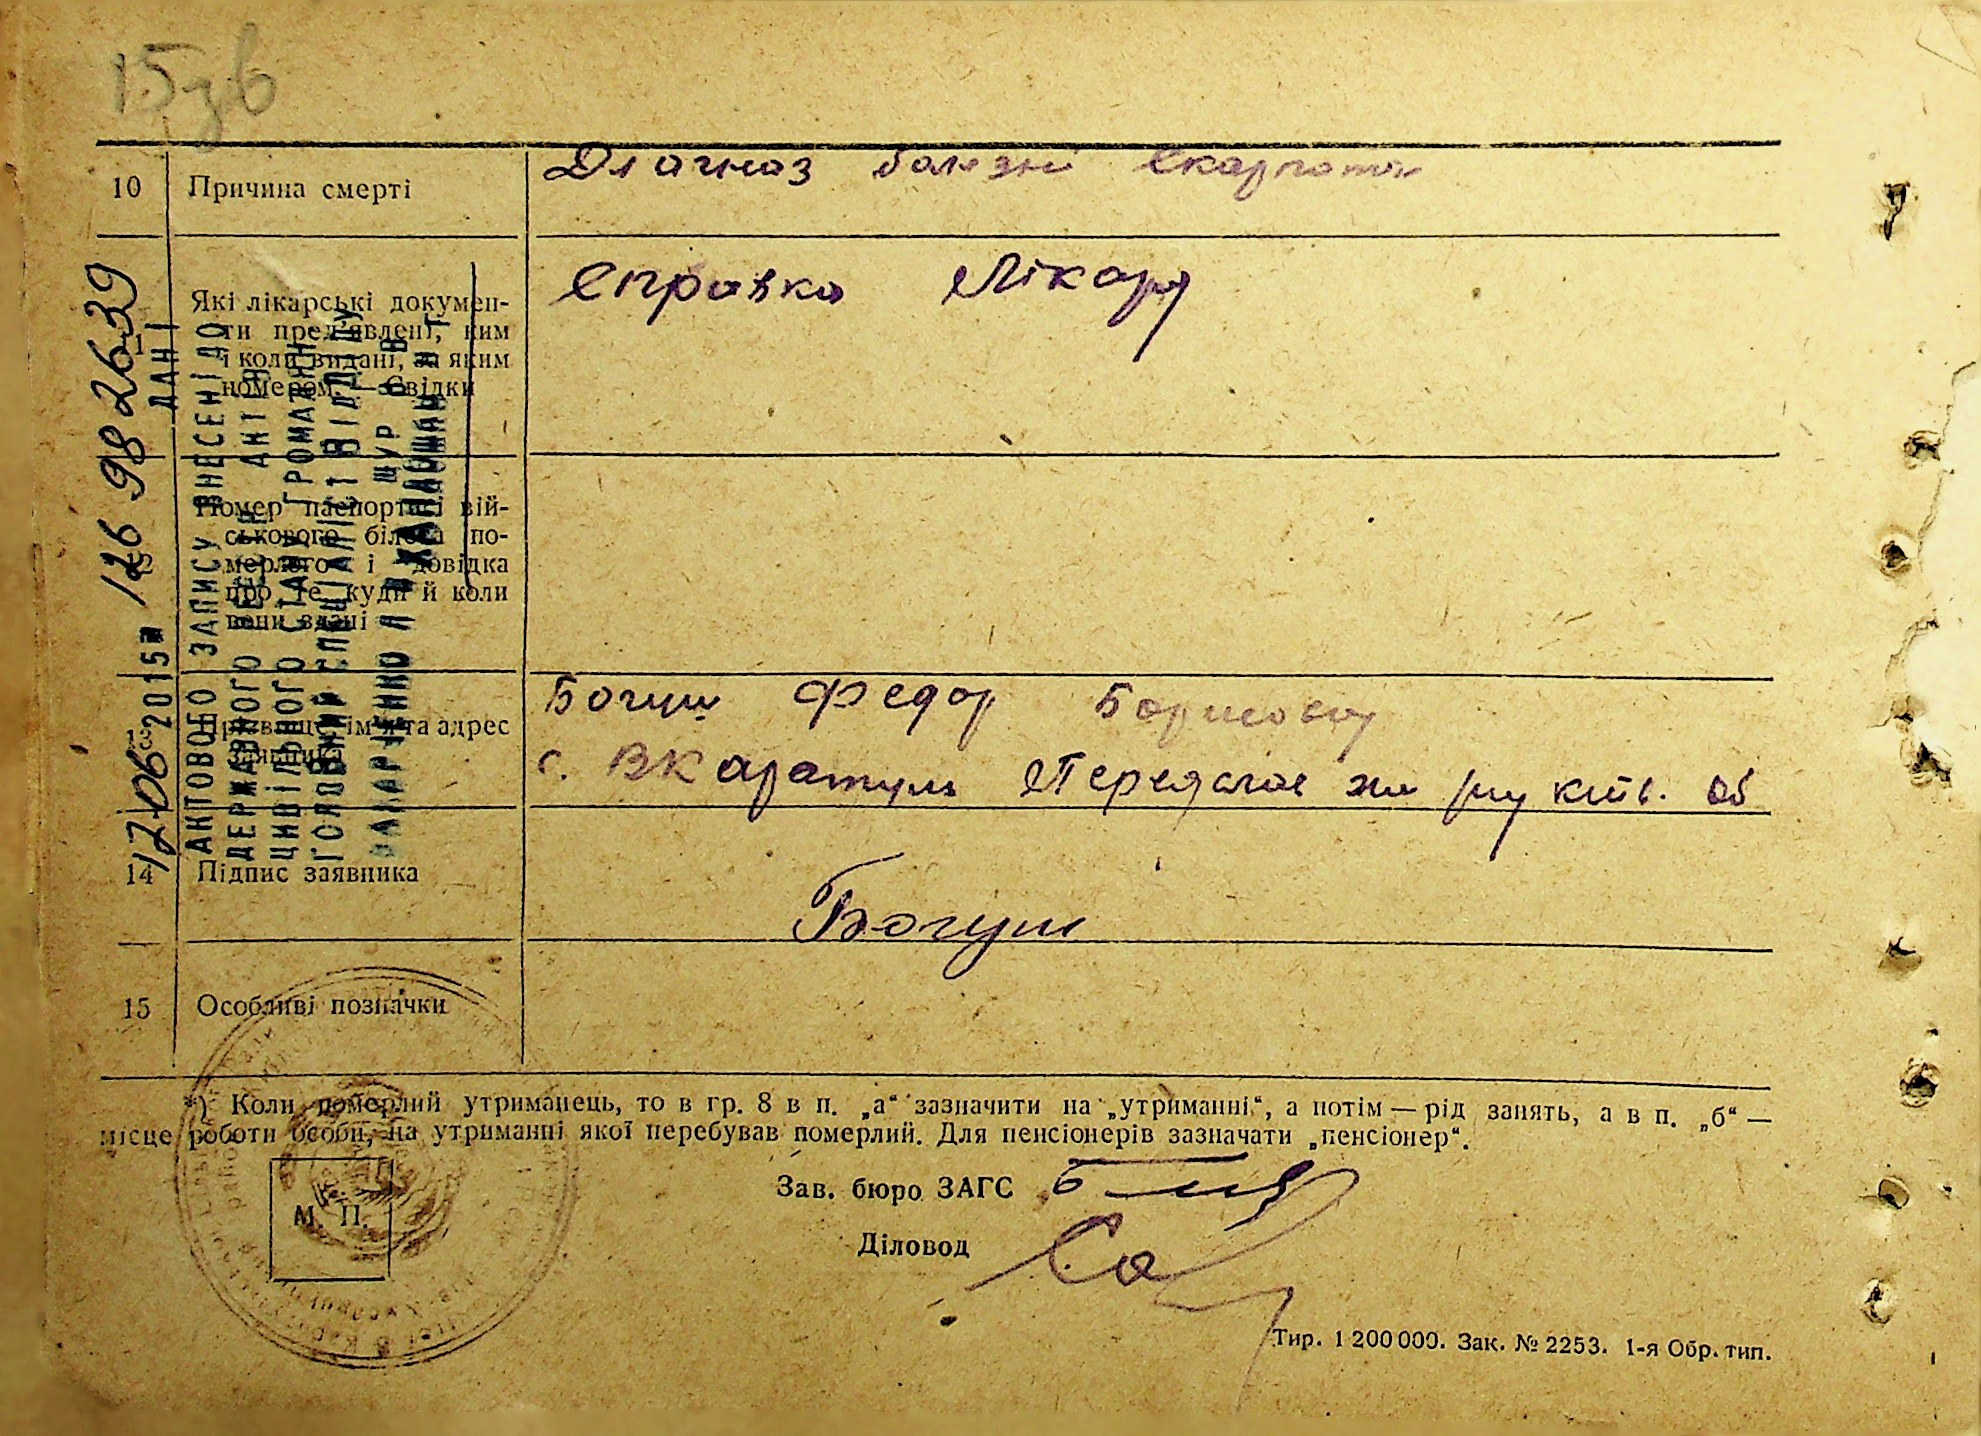 15зв
10 Причина смерті Діагноз болезні Скарлатин
Які лікарські докумен- Справка Лікару
ти пред'явлені, ким
і коли видані, за яким
номером. — Свідки
Номер паспорта і вій-
ськового білета по-
мерлого і довідка
про те, куди й коли
вони здані
Прізвище, ім'я та адрес Богуш Федор Борисову
заявника с. ВКаратуль Переяслов рну київ. об
14 Підпис заявника Богуш
15 Особливі позначки
*) Коли померлий утриманець, то в гр. 8 в п. „а“ зазначити на „утриманні“, а потім — рід занять, а в п. „б“ —
місце роботи особи, на утриманні якої перебував померлий. Для пенсіонерів зазначати „пенсіонер“.
М. П.
Зав. бюро ЗАГС
Діловод
Тир. 1 200 000. Зак. № 2253. 1-я Обр. тип.
ДАНІ
АКТОВОГО ЗАПИСУ ВНЕСЕНІ ДО
ДЕРЖАВНОГО АКТІВ
ЦИВІЛЬНОГО СТАНУ ГРОМАДЯН
ГОЛОВНИЙ СПЕЦІАЛІСТ ВІДДІЛУ
17 06 2015 126 98 2639